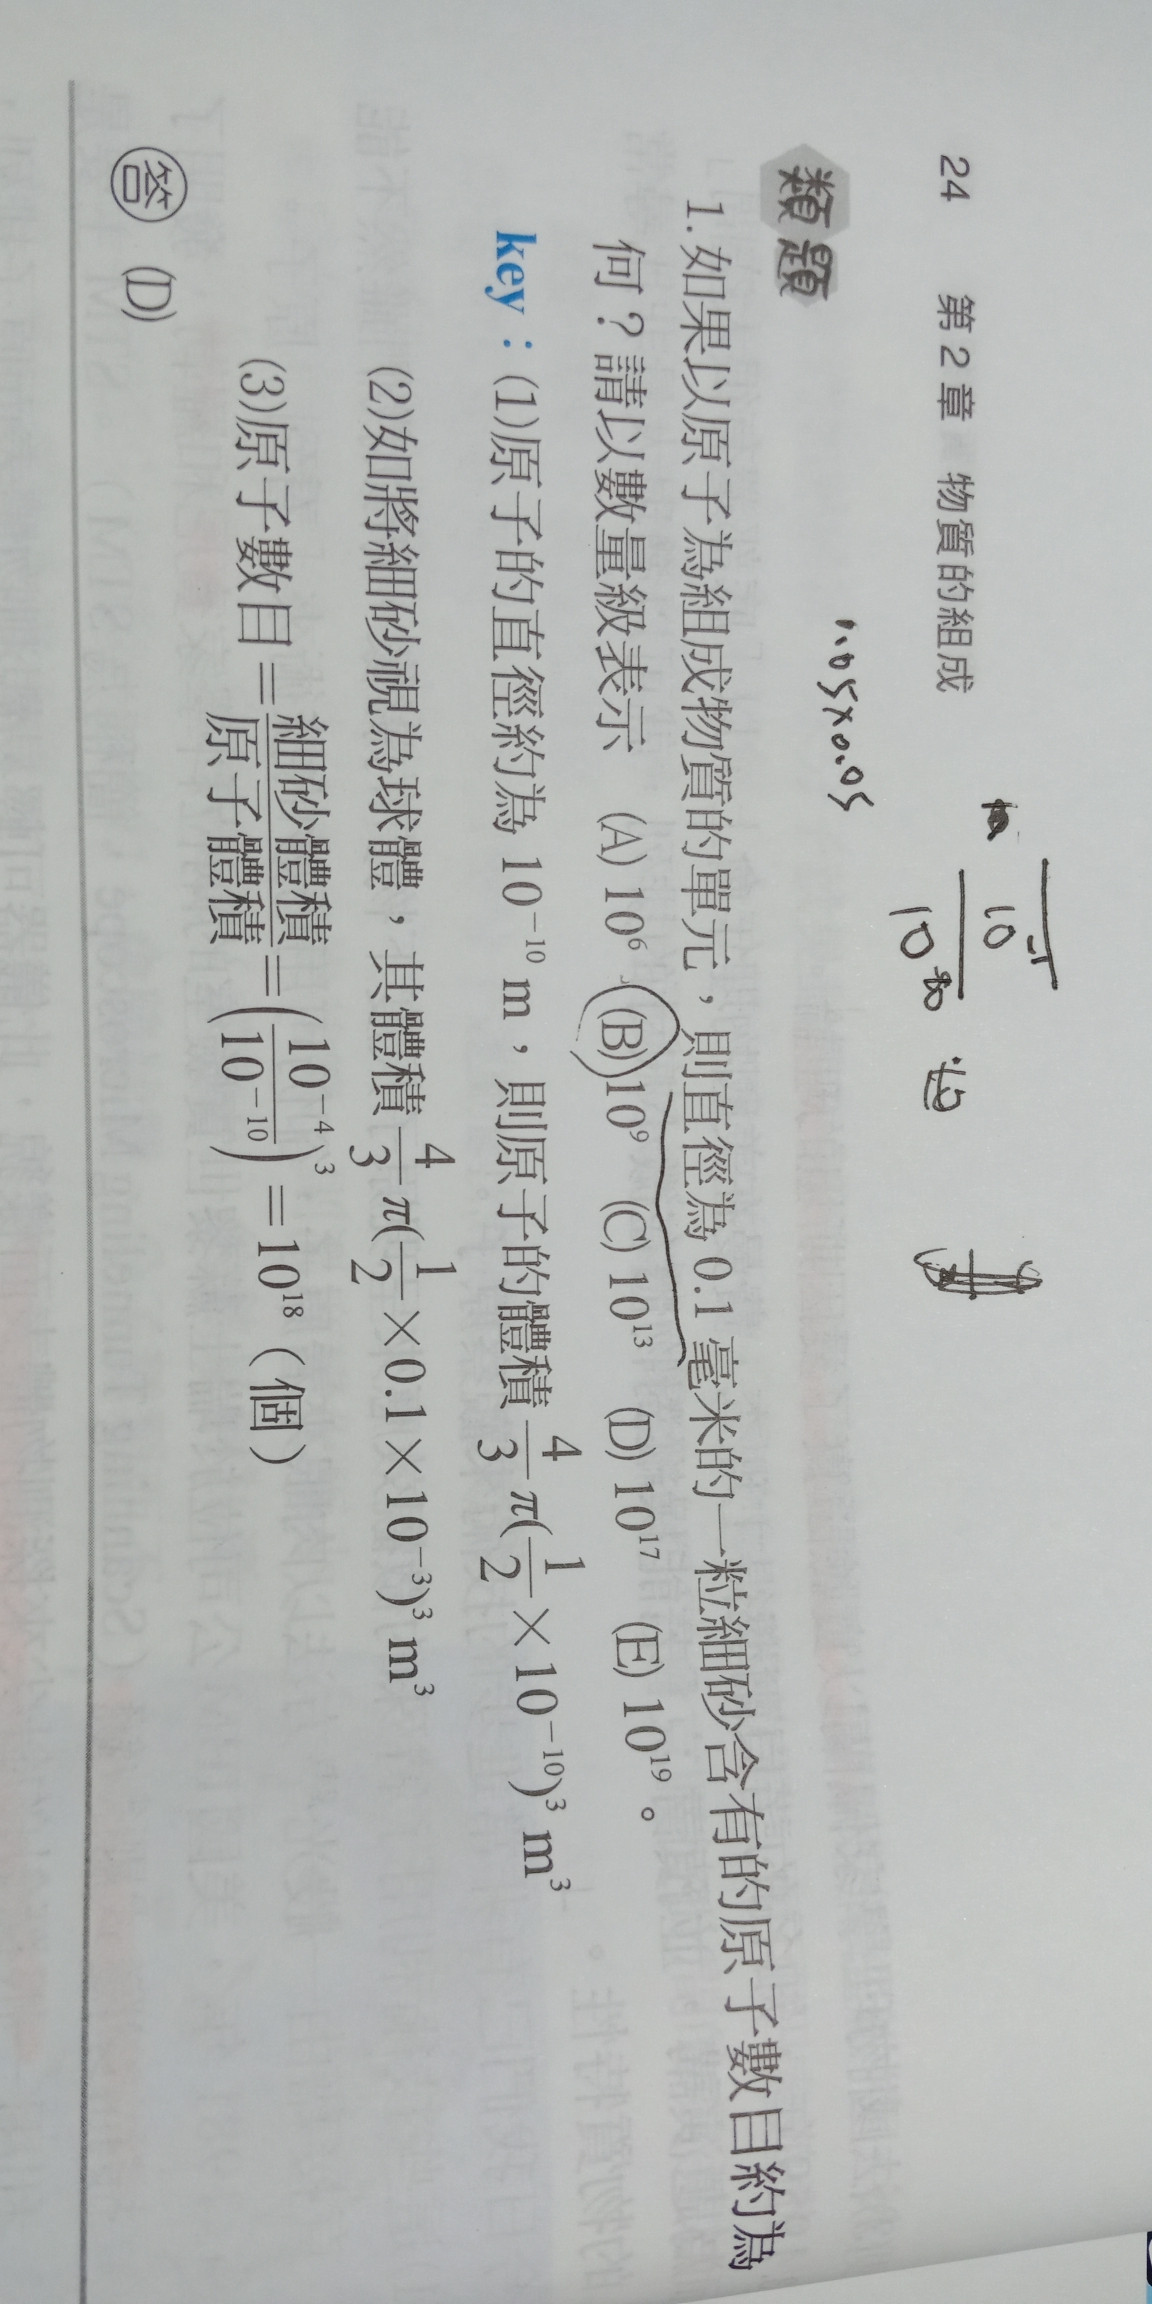 24 第2章 物質的組成
10⁻¹
10
1.05×0.05
類題
1.如果以原子為組成物質的單元，則直徑為 0.1 毫米的一粒細砂含有的原子數目約為
何？請以數量級表示 (A) 10⁶ (B) 10⁹ (C) 10¹³ (D) 10¹⁷ (E) 10¹⁹。
key：(1)原子的直徑約為 10⁻¹⁰ m，則原子的體積 4/3 π(1/2 × 10⁻¹⁰)³ m³
(2)如將細砂視為球體，其體積 4/3 π(1/2 × 0.1 × 10⁻³)³ m³
(3)原子數目 = 細砂體積/原子體積 = (10⁻⁴/10⁻¹⁰)³ = 10¹⁸（個）
答 (D)